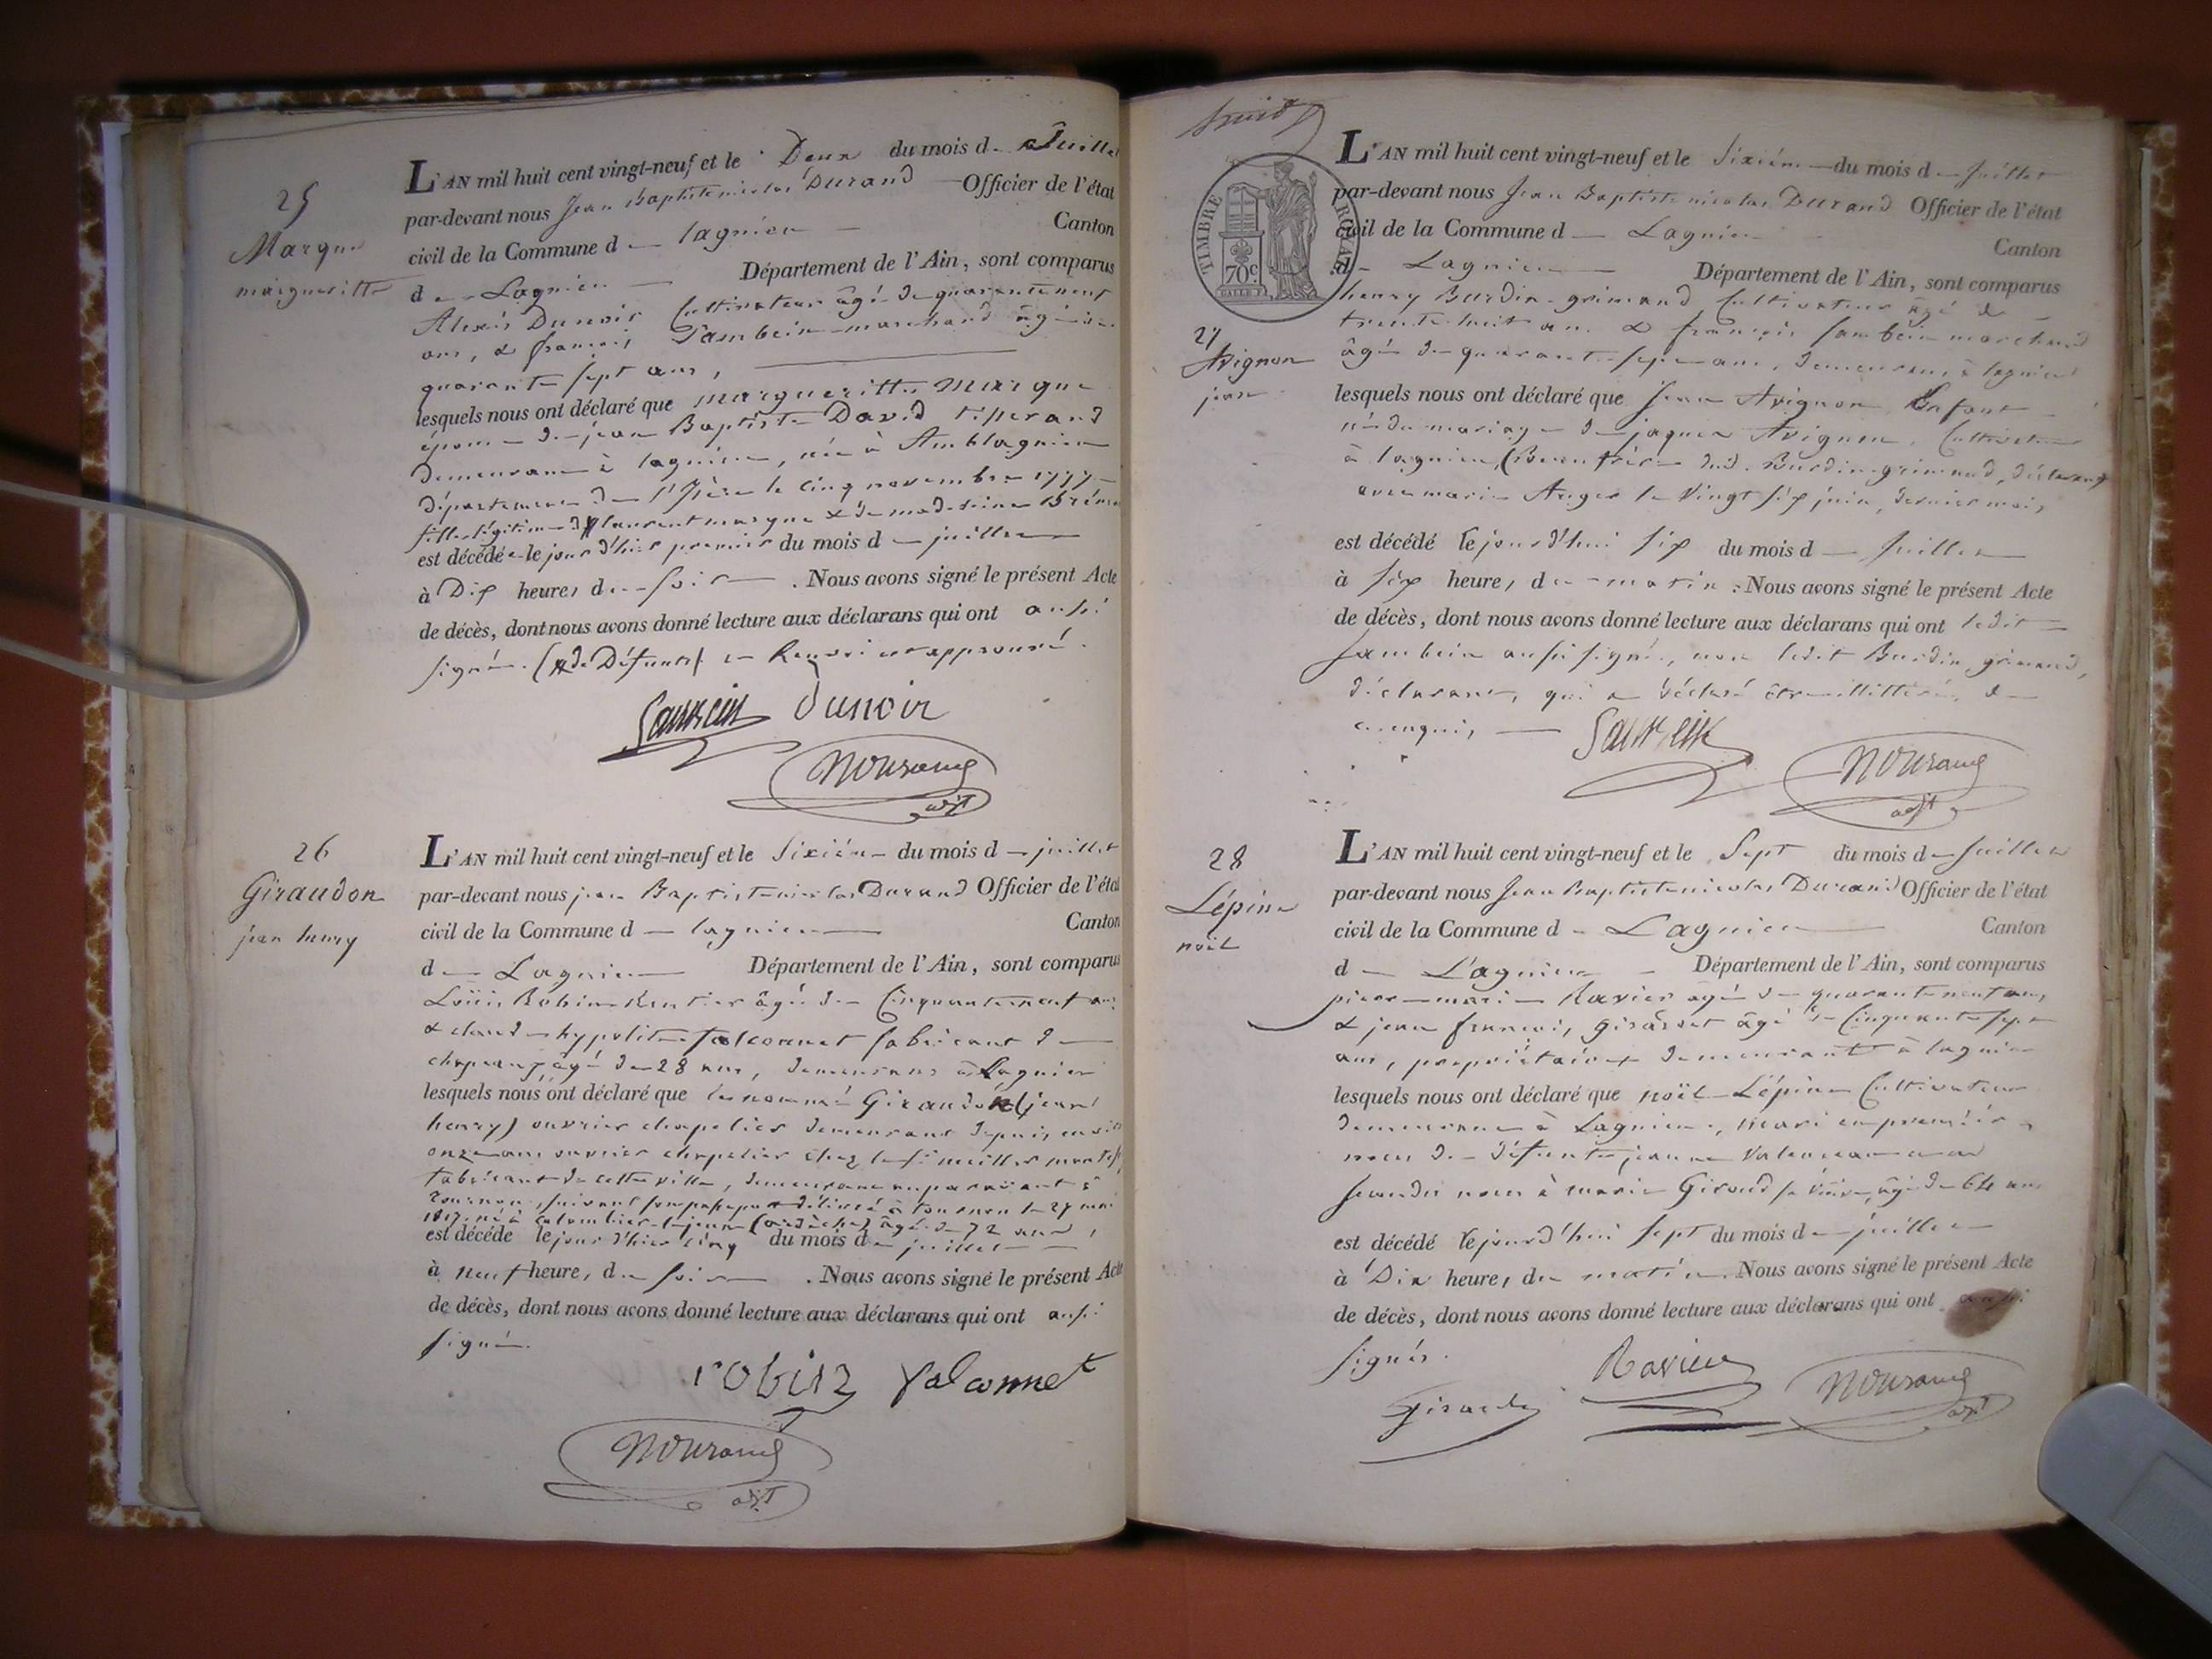 25
Marque
margueritte
L'AN mil huit cent vingt-neuf et le Deux du mois d- Juillet
par-devant nous Jean Baptiste nicolas Durand Officier de l'état
civil de la Commune d - lagnieu Canton
de Lagnieu Département de l'Ain, sont comparus
Alexis Dunoir Cultivateur âgé de quarante neuf
ans, & françois Sambein marchand âgé de
quarante sept ans,
lesquels nous ont déclaré que margueritte Marque
épouse de jean Baptiste David tisserand
demeurant à lagnieu, née à Amblagnieu
département de l'Isère le cinq novembre 1777
fille légitime # laurent marque & de madeleine
est décédée le jour d'hier premier du mois d - juillet
à Dix heures du soir . Nous avons signé le présent Acte
de décès, dont nous avons donné lecture aux déclarans qui ont aussi
signé. (# de Défunts) le Renvoi est approuvé.
Sambein Dunoir
NDurand
adjt
26
Giraudon
jean henry
L'AN mil huit cent vingt-neuf et le Sixième du mois d - juillet
par-devant nous jean Baptiste nicolas Durand Officier de l'état
civil de la Commune d - lagnieu Canton
d - Lagnieu Département de l'Ain, sont comparus
Loüis Robin Rentier âgé de Cinquante neuf ans
& claude hypolite falconnet fabricant de
chapeaux âgé de 28 ans, demeurans à Lagnieu
lesquels nous ont déclaré que le nommé Giraudon (jean
henry) ouvrier chapelier demeurant depuis environ
onze ans ouvrier chapelier chez le sr
fabricant de cette ville, demeurant auparavant à
Tournon, suivant son passeport délivré à tournon le 27 mai
1817. né à Colombier-le-jeune (ardèche) âgé de 72 ans,
est décédé le jour d'hier cinq du mois de juillet
à neuf heures du soir . Nous avons signé le présent Acte
de décès, dont nous avons donné lecture aux déclarans qui ont aussi
signé.
robin falconnet
NDurand
adjt
TIMBRE ROYAL
70c
27
Avignon
jean
L'AN mil huit cent vingt-neuf et le Sixième du mois d - Juillet
par-devant nous Jean Baptiste nicolas Durand Officier de l'état
civil de la Commune d - Lagnieu Canton
d - Lagnieu Département de l'Ain, sont comparus
henry Burdin-grimaud Cultivateur âgé de
trente huit ans & françois Sambein marchand
âgé de quarante sept ans, demeurans à lagnieu
lesquels nous ont déclaré que Jean Avignon Enfant
né du mariage de jaques Avignon, Cultivateur
à lagnieu, (Beau frère dud. Burdin-grimaud, déclarant)
avec marie Anger le Vingt six juin, dernier mois,
est décédé le jourd'hui six du mois d - Juillet
à six heures du matin . Nous avons signé le présent Acte
de décès, dont nous avons donné lecture aux déclarans qui ont ledit
Sambein aussi signé, non ledit Burdin grimaud,
déclarant, qui a déclaré être illittéré, de
ce enquis,
Sambein
NDurand
adjt
28
Lépine
noël
L'AN mil huit cent vingt-neuf et le Sept du mois d - Juillet
par-devant nous Jean Baptiste nicolas Durand Officier de l'état
civil de la Commune d - Lagnieu Canton
d - Lagnieu Département de l'Ain, sont comparus
pierre-marie Ravier âgé de quarante neuf ans,
& jean françois, girardet âgé de Cinquante sept
ans, propriétaires demeurants à lagnieu
lesquels nous ont déclaré que noël Lépine Cultivateur
demeurant à Lagnieu, mari en première
noces de défunte jeanne
secondes noces à marie Giroud sa veuve, âgé de 64 ans
est décédé le jourd'hui sept du mois d - juillet
à Dix heures du matin. Nous avons signé le présent Acte
de décès, dont nous avons donné lecture aux déclarans qui ont aussi
signés.
Ravier
NDurand
adjt